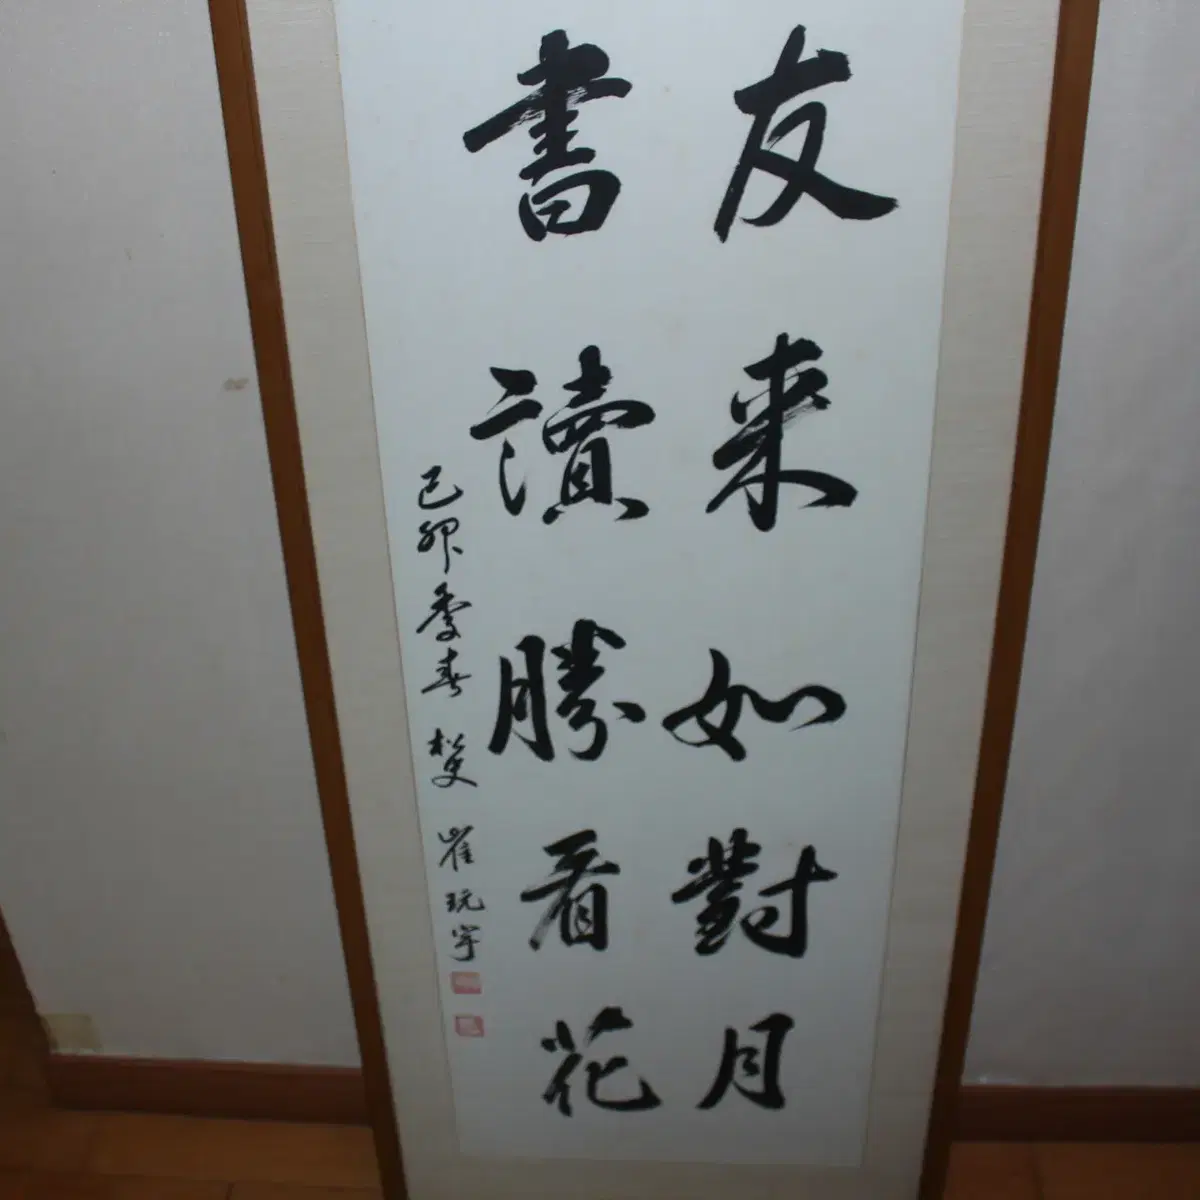 友来如對月
書讀勝看花
己卯季春 松史 崔玩宇